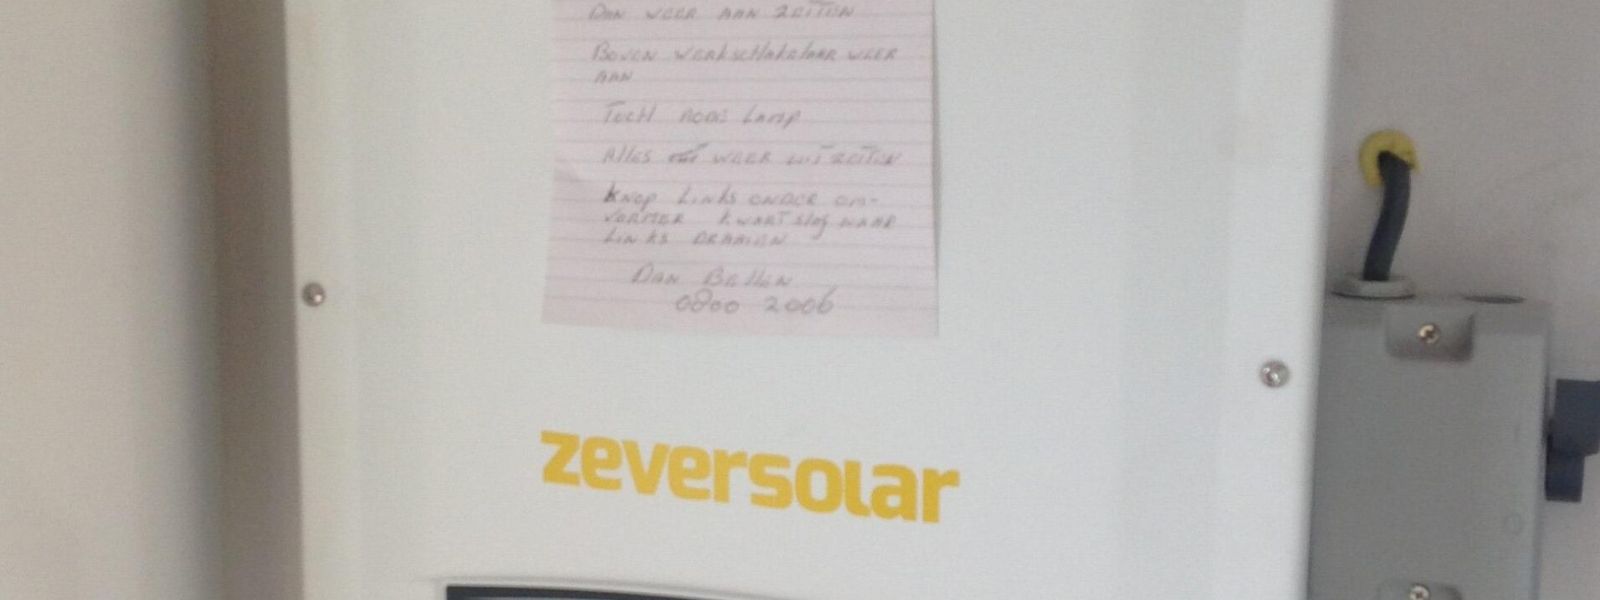 DAN WEER AAN ZETTEN
BOVEN WERKSCHAKELAAR WEER
AAN
TOCH RODE LAMP
ALLES WEER UITZETTEN
KNOP LINKS ONDER OM-
VORMER KWARTSLAG NAAR
LINKS DRAAIEN
DAN BELLEN
0800 2006
zeversolar